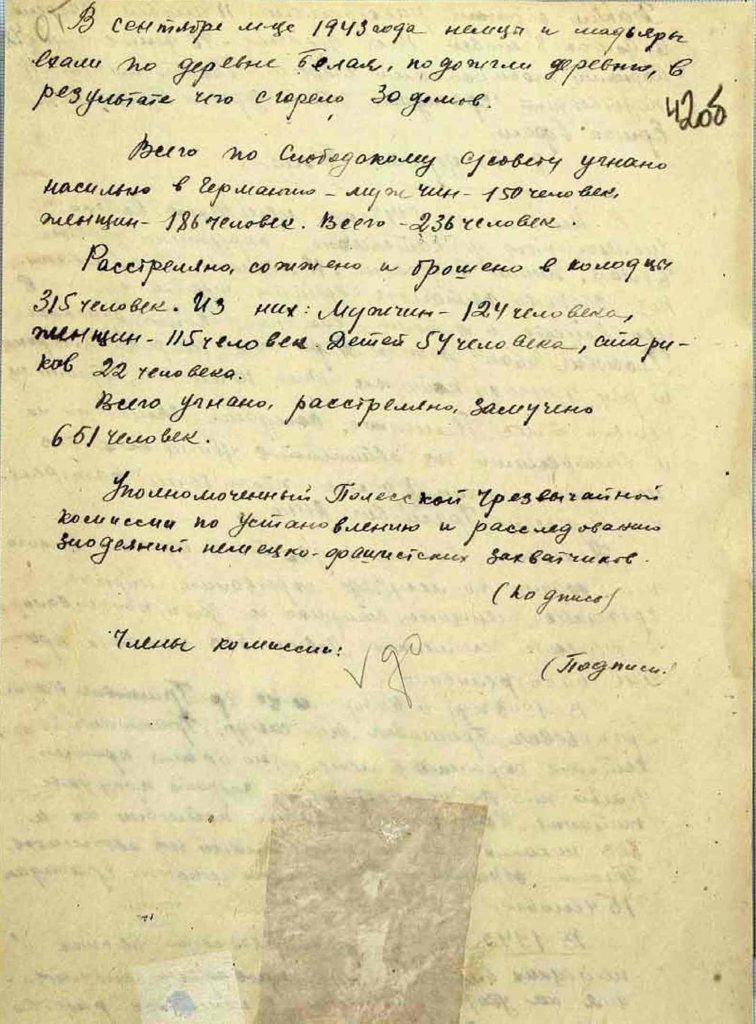 В сентябре м-це 1943 года немцы и мадьяры
ехали по деревне Белая, подожгли деревню, в
результате чего сгорело 30 домов.
42об
Всего по Слободскому с/совету угнано
насильно в Германию - мужчин - 150 человек,
женщин - 186 человек. Всего - 236 человек.
Расстреляно, сожжено и брошено в колодцы
315 человек. Из них: Мужчин - 124 человека,
женщин - 115 человек. Детей 54 человека, стари-
ков 22 человека.
Всего угнано, расстреляно, замучено
651 человек.
Уполномоченный Полесской Чрезвычайной
комиссии по установлению и расследованию
злодеяний немецко-фашистских захватчиков.
(подпись)
Члены комиссии:
(Подписи)